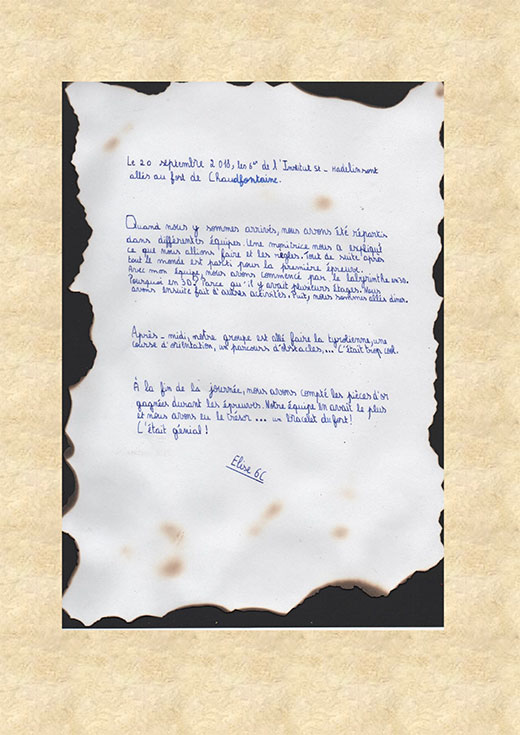 Le 20 septembre 2018, les 6es de l'Institut St-Hadelin sont
allés au fort de Chaudfontaine.
Quand nous y sommes arrivés, nous avons été répartis
dans différents équipes. Une monitrice nous a expliqué
ce que nous allions faire et les règles. Tout de suite après
tout le monde est parti pour la première épreuve.
Avec mon équipe, nous avons commencé par le labyrinthe en 3D.
Pourquoi en 3D? Parce qu'il y avait plusieurs étages. Nous
avons ensuite fait d'autres activités. Puit, nous sommes allés diner.
Après-midi, notre groupe est allé faire la tyrolienne, une
course d'orientation, un parcours d'obstacles,... C'était trop cool.
À la fin de la journée, nous avons compté les pièces d'or
gagnées durant les épreuves. Notre équipe en avait le plus
et nous avons eu le trésor ... un bracelet du fort!
C'était génial!
Elise 6C